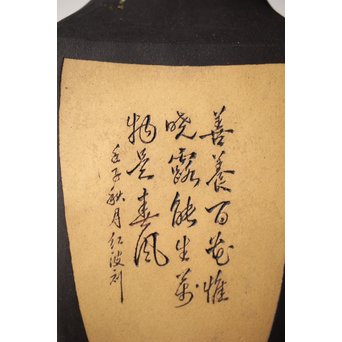 善养百花惟
晓露能生万
物是春风
壬子秋月红波刻